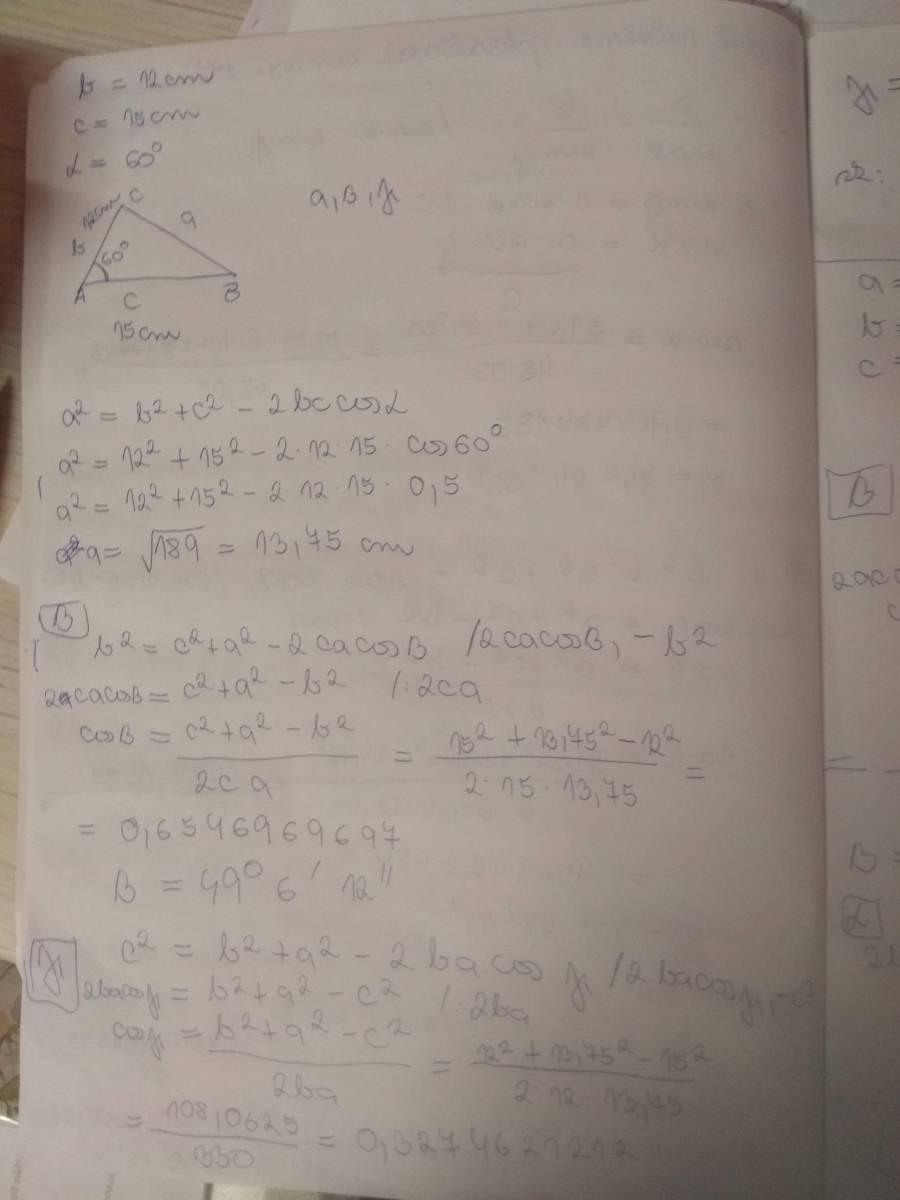 b = 12cm
c = 15cm
α = 60°
a, β, γ
12cm C
b a
60°
A c B
15cm
a² = b² + c² - 2bc cosα
a² = 12² + 15² - 2·12·15· cos60°
a² = 12² + 15² - 2·12·15· 0,5
a = √189 = 13,75 cm
β
b² = c² + a² - 2ca cosβ /2cacosβ, -b²
2cacosβ = c² + a² - b² /:2ca
cosβ = (c² + a² - b²)/(2ca) = (15² + 13,75² - 12²)/(2·15·13,75) =
= 0,6546969697
β = 49° 6' 12"
γ
c² = b² + a² - 2ba cosγ /2bacosγ, -c²
2bacosγ = b² + a² - c² /:2ba
cosγ = (b² + a² - c²)/(2ba) = (12² + 13,75² - 15²)/(2·12·13,75)
= 108,0625/330 = 0,3274621212
γ =
a =
b =
c =
β
2ac
c
β =
α
2b